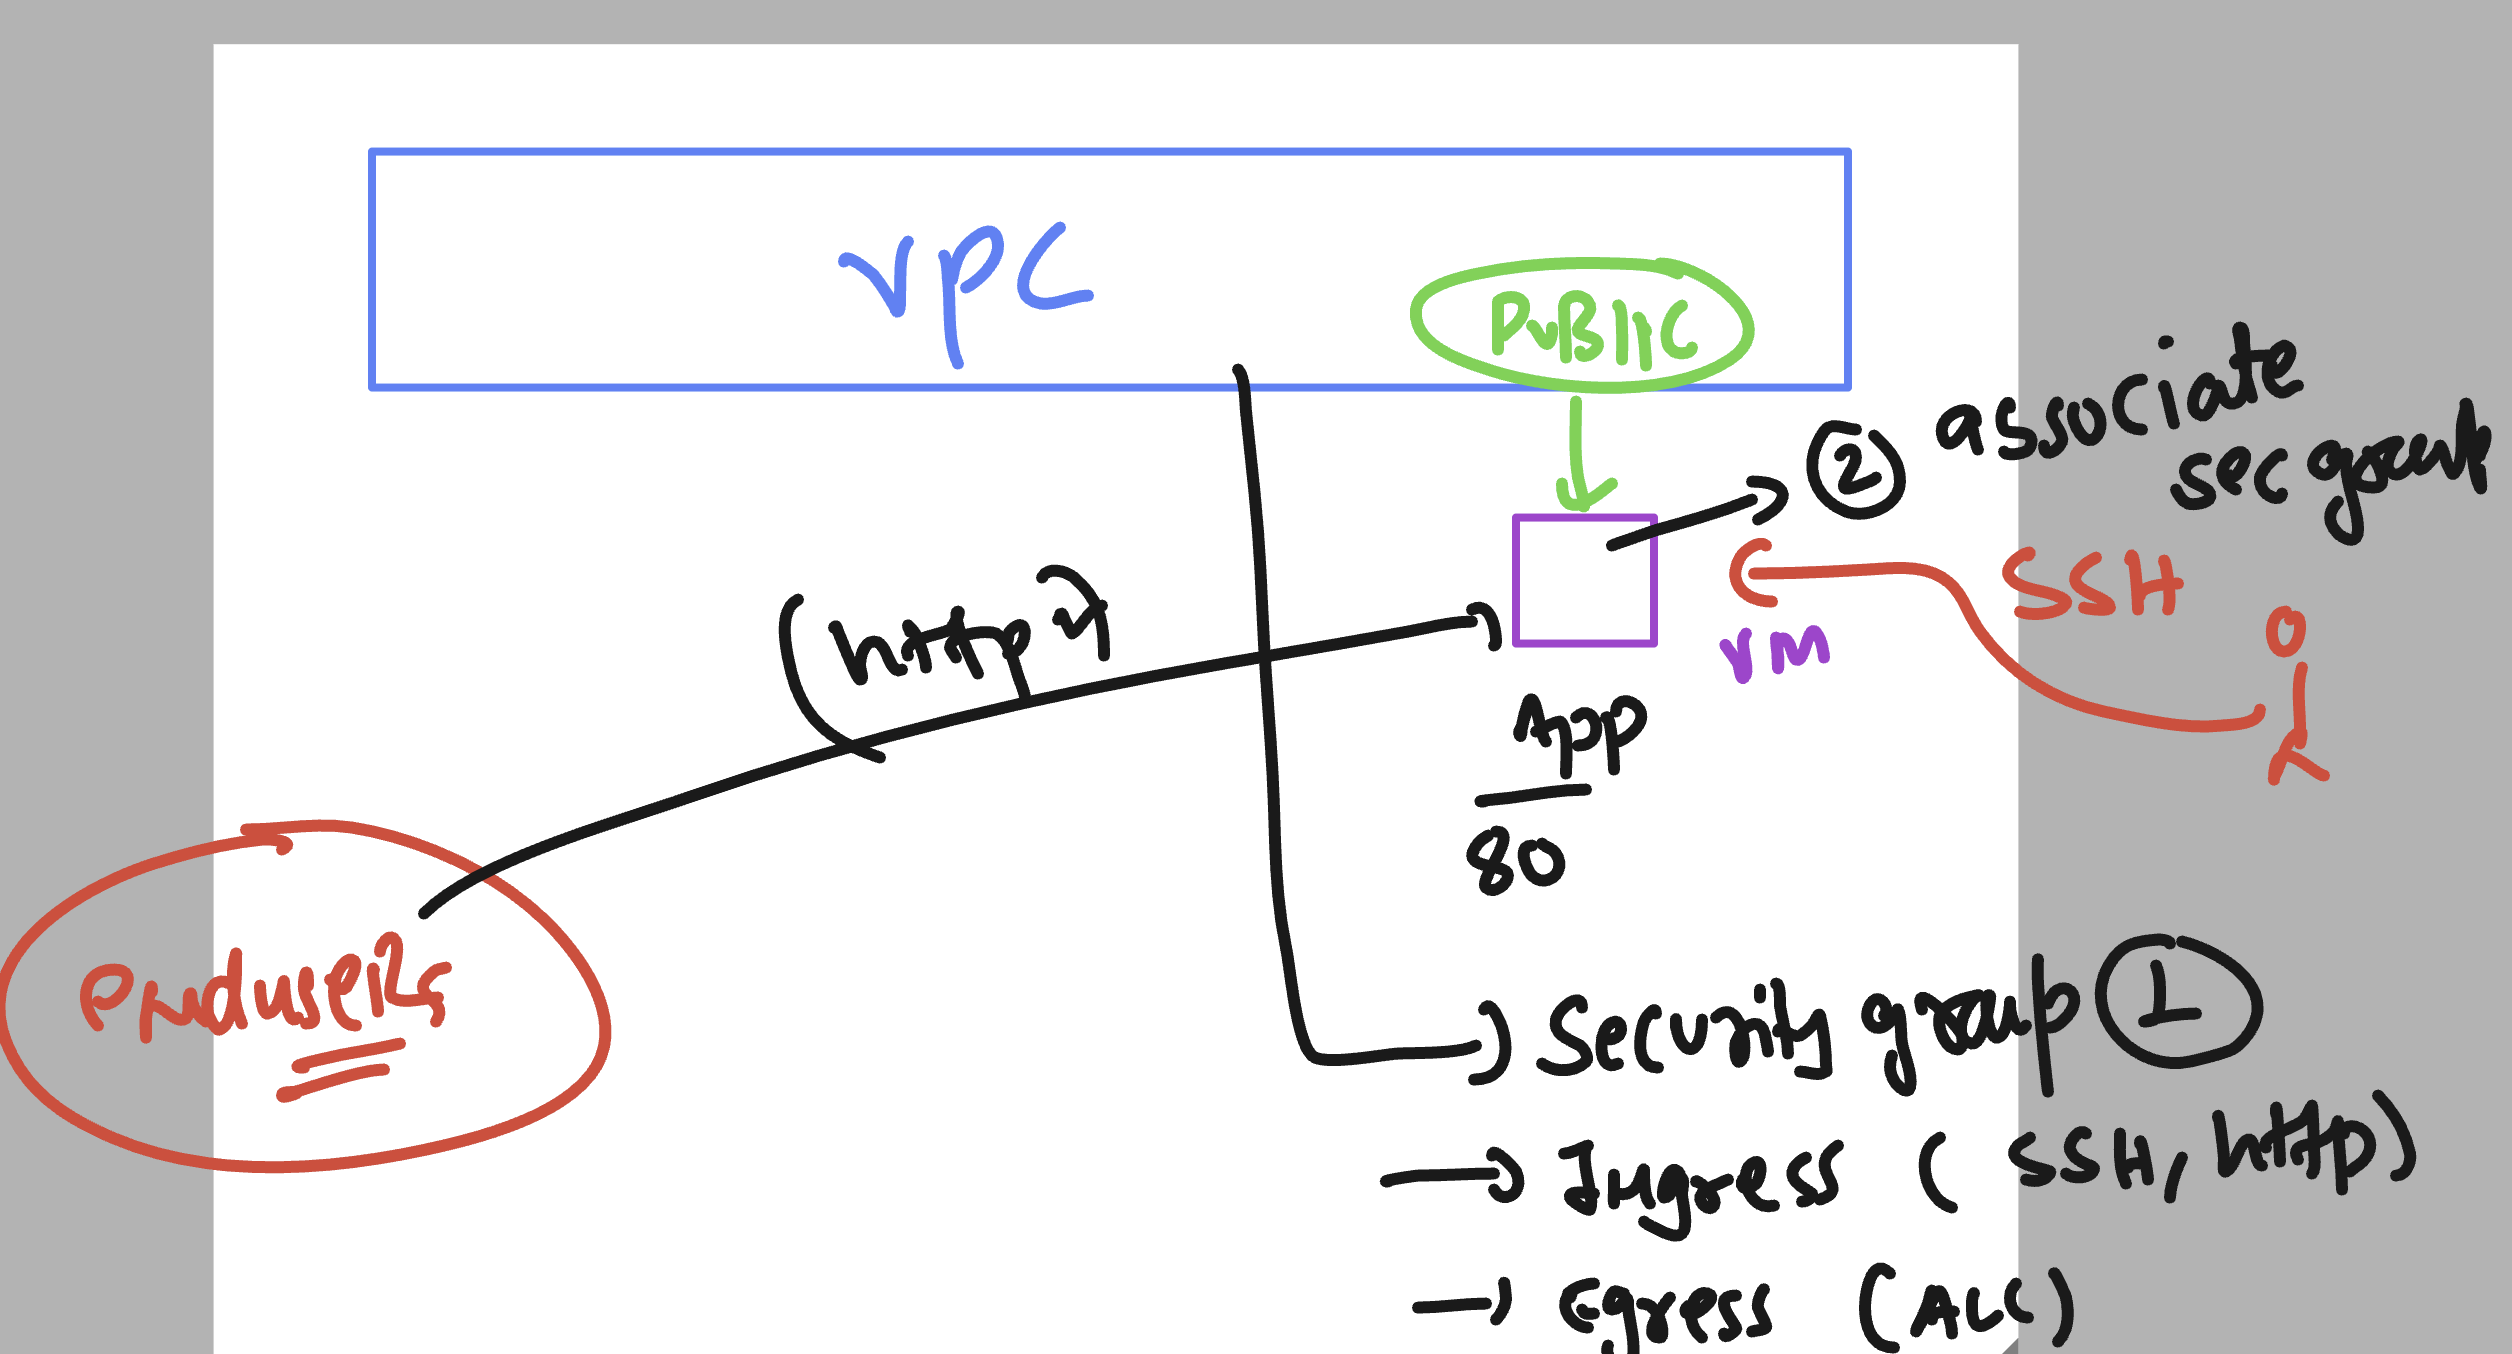 VPC
PUBLIC
② associate
sec group
SSH
VM
(http →)
App
80
Producers
Security group ①
Ingress (SSH, http)
Egress (ALL)